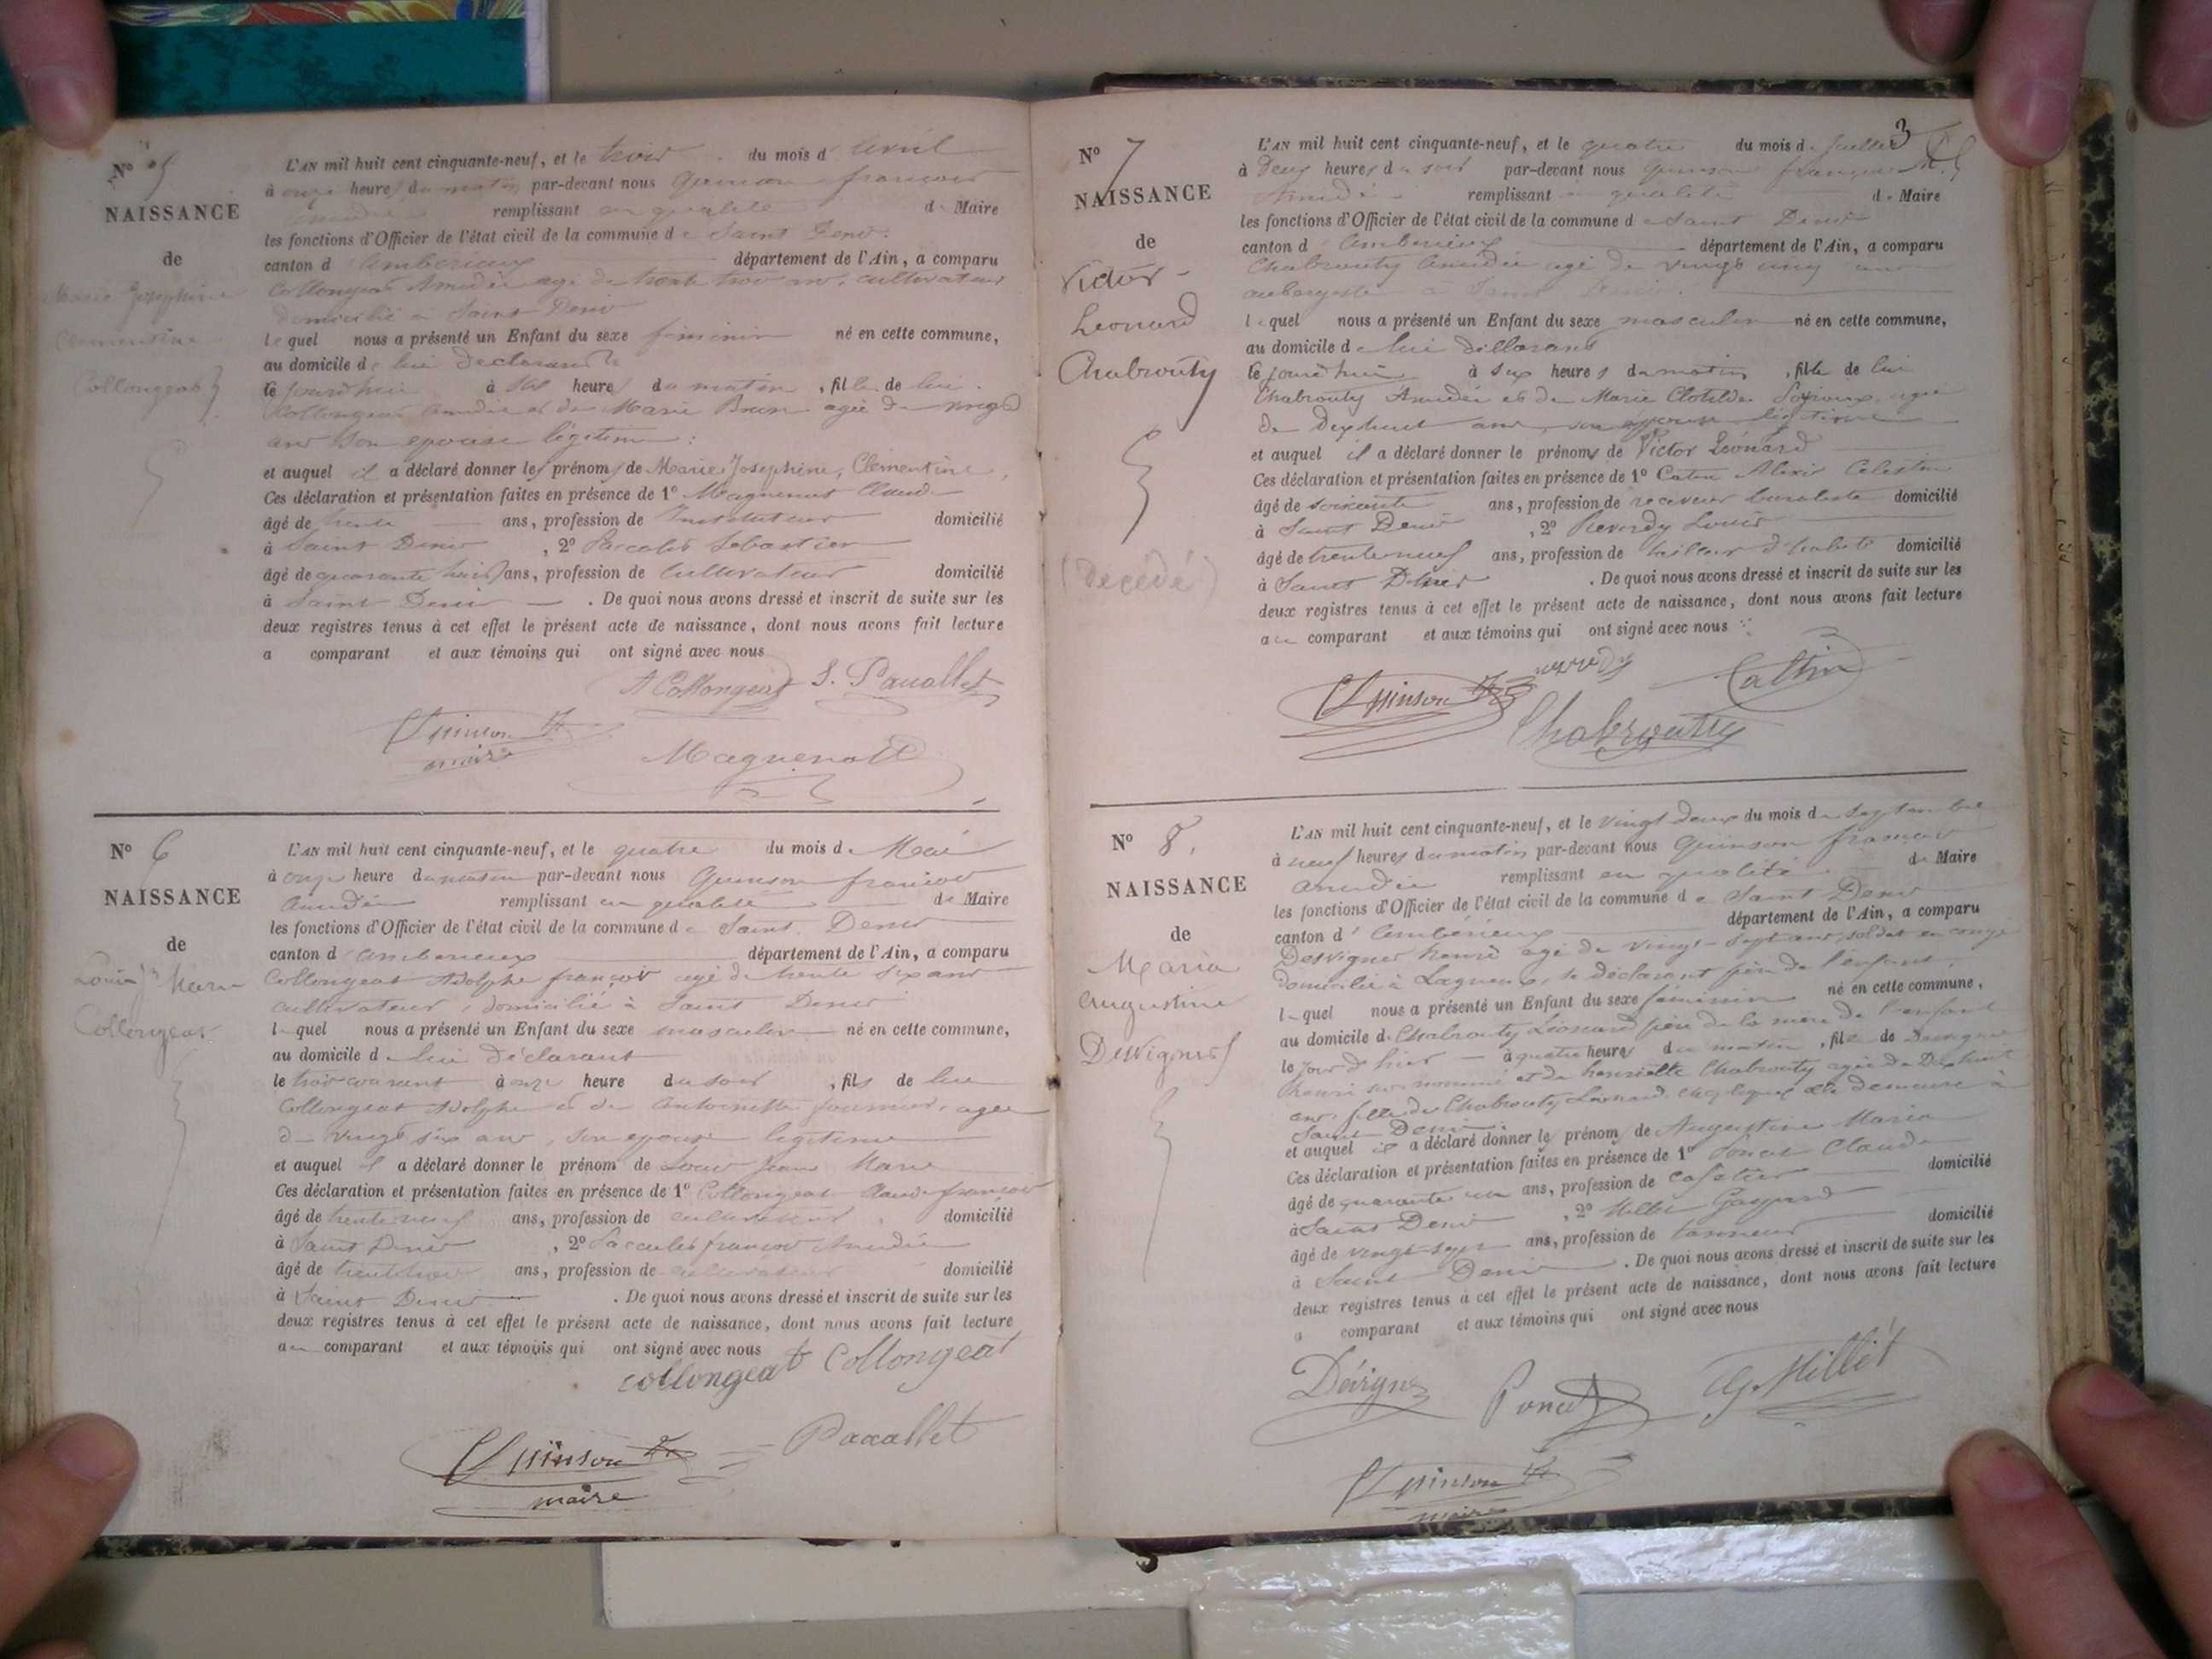 N° 5
NAISSANCE
de
Marie Josephine
Clementine
Collongeat
L'AN mil huit cent cinquante-neuf, et le trois du mois d'avril
à onze heures du matin par-devant nous Quinson françois
Amédée remplissant en qualité de Maire
les fonctions d'Officier de l'état civil de la commune de Saint Denis
canton d'Amberieux département de l'Ain, a comparu
Collongeat Amédée agé de trente trois ans, cultivateur
domicilié a Saint Denis
lequel nous a présenté un Enfant du sexe féminin né en cette commune,
au domicile de lui déclarant
le jourd'hui à heures du matin, fille de lui
Collongeat Amédée et de Marie Brun agée de vingt
ans son epouse légitime
et auquel il a déclaré donner les prénoms de Marie Josephine, Clementine
Ces déclaration et présentation faites en présence de 1° Magnenot Claude
âgé de trente ans, profession de Instituteur domicilié
à Saint Denis, 2° Sebastien
âgé de quarante huit ans, profession de Cultivateur domicilié
à Saint Denis. De quoi nous avons dressé et inscrit de suite sur les
deux registres tenus à cet effet le présent acte de naissance, dont nous avons fait lecture
a comparant et aux témoins qui ont signé avec nous
A Collongeat
Quinson
maire
N° 6
NAISSANCE
de
Louis Jn Marie
Collongeat
L'AN mil huit cent cinquante-neuf, et le quatre du mois de Mai
à onze heure du matin par-devant nous Quinson françois
Amédée remplissant en qualité de Maire
les fonctions d'Officier de l'état civil de la commune de Saint Denis
canton d'Amberieux département de l'Ain, a comparu
Collongeat Adolphe françois agé de trente six ans
cultivateur, domicilié à Saint Denis
lequel nous a présenté un Enfant du sexe masculin né en cette commune,
au domicile de lui déclarant
le trois courant à onze heure du soir, fils de lui
Collongeat Adolphe et de Antoinette fournier, agée
de vingt six ans, son epouse legitime
et auquel il a déclaré donner le prénom de Louis Jean Marie
Ces déclaration et présentation faites en présence de 1° Collongeat Claude françois
âgé de trente neuf ans, profession de cultivateur domicilié
à Saint Denis, 2° françois Amédée
âgé de trente trois ans, profession de cultivateur domicilié
à Saint Denis. De quoi nous avons dressé et inscrit de suite sur les
deux registres tenus à cet effet le présent acte de naissance, dont nous avons fait lecture
au comparant et aux témoins qui ont signé avec nous
collongeat Collongeat
Quinson
maire
3
N° 7
NAISSANCE
de
Victor
Leonard
Chabrouty
(Decédé)
L'AN mil huit cent cinquante-neuf, et le quatre du mois de Juillet
à deux heures du soir par-devant nous Quinson françois
Amédée remplissant en qualité de Maire
les fonctions d'Officier de l'état civil de la commune de Saint Denis
canton d'Amberieux département de l'Ain, a comparu
Chabrouty Amédée agé de vingt cinq ans
aubergiste à Saint Denis
lequel nous a présenté un Enfant du sexe masculin né en cette commune,
au domicile de lui déclarant
le jourd'hui à six heures du matin, fils de lui
Chabrouty Amédée et de Marie Clotilde agée
de dix huit ans, son épouse légitime
et auquel il a déclaré donner le prénoms de Victor Léonard
Ces déclaration et présentation faites en présence de 1° Catin Alexis Celestin
âgé de soixante ans, profession de receveur buraliste domicilié
à Saint Denis, 2° Reverdy Louis
âgé de trente neuf ans, profession de tailleur d'habits domicilié
à Saint Denis. De quoi nous avons dressé et inscrit de suite sur les
deux registres tenus à cet effet le présent acte de naissance, dont nous avons fait lecture
au comparant et aux témoins qui ont signé avec nous
Quinson
Chabrouty
N° 8.
NAISSANCE
de
Maria
Augustine
Desvignes
L'AN mil huit cent cinquante-neuf, et le vingt deux du mois de septembre
à neuf heures du matin par-devant nous Quinson françois
Amédée remplissant en qualité de Maire
les fonctions d'Officier de l'état civil de la commune de Saint Denis
canton d'Ambérieux département de l'Ain, a comparu
Desvignes henri agé de vingt-sept ans, soldat en congé
domicilié à Lagneux, se déclarant père de l'enfant
lequel nous a présenté un Enfant du sexe féminin né en cette commune,
au domicile de Chabrouty Léonard père de la mère de l'enfant
le jour d'hier à quatre heures du matin, fille de Desvignes
henri sus nommé et de henriette Chabrouty agée de Dix huit
ans, fille de Chabrouty Léonard, chez lequel elle demeure à
Saint Denis
et auquel il a déclaré donner le prénom de Augustine Maria
Ces déclaration et présentation faites en présence de 1° Poncet Claude
âgé de quarante un ans, profession de cafetier domicilié
à Saint Denis, 2° Millet Gaspard
âgé de vingt-sept ans, profession de tanneur domicilié
à Saint Denis. De quoi nous avons dressé et inscrit de suite sur les
deux registres tenus à cet effet le présent acte de naissance, dont nous avons fait lecture
a comparant et aux témoins qui ont signé avec nous
Poncet G. Millet
Quinson
maire